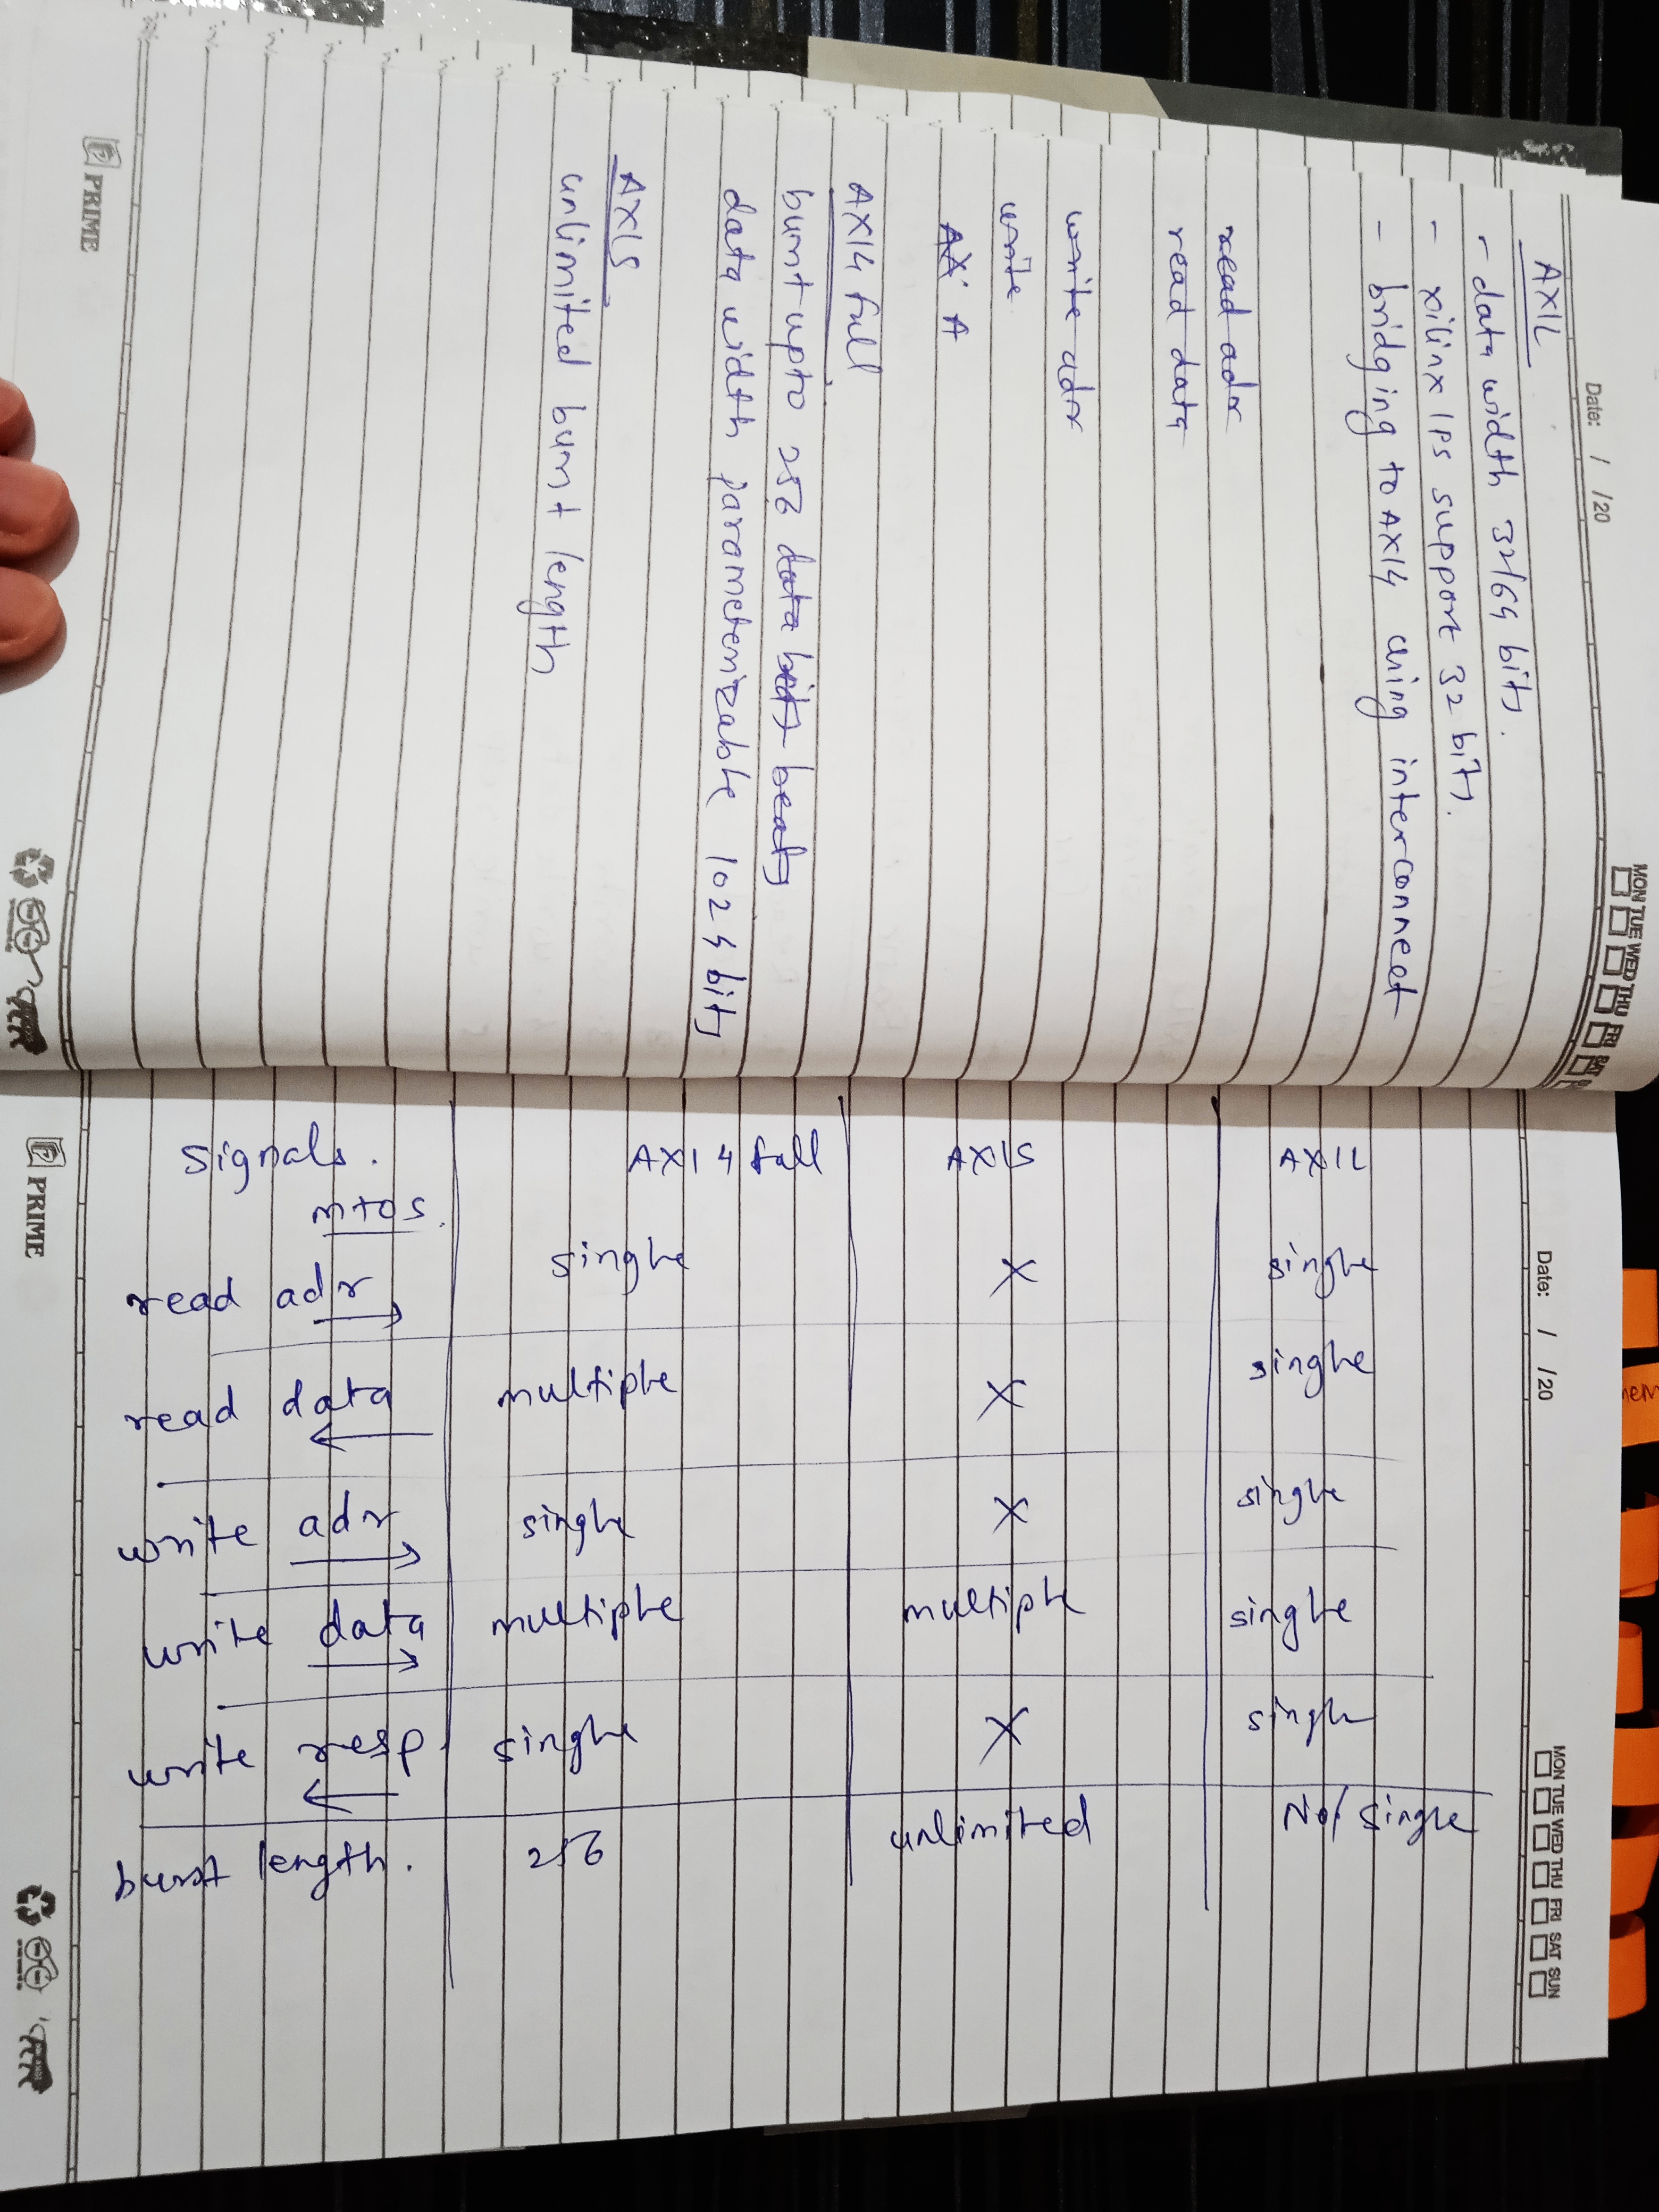 Date: / /20
MON TUE WED THU FRI SAT
AXIL
- data width 32/64 bits.
- xilinx IPs support 32 bits.
- bridging to AXI4 using interconnect
read adr
read data
write adr
write
AX A
AXI4 full
burst upto 256 data bits beats
data width parameterizable 1024 bits
AXIS
unlimited burst length
PRIME
Date: / /20
MON TUE WED THU FRI SAT SUN
Signals. AXI4 full AXIS AXIL
m to s.
read adr → single X single
read data ← multiple X single
write adr → single X single
write data → multiple multiple single
write resp. ← single X single
burst length. 256 unlimited No/single
PRIME